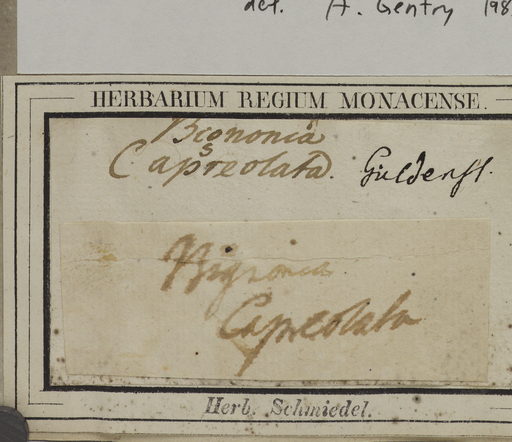 det. A. Gentry 198
HERBARIUM REGIUM MONACENSE.
Bignonia
Capreolata. Güldenst.
Bignonia
Capreolata
Herb. Schmiedel.